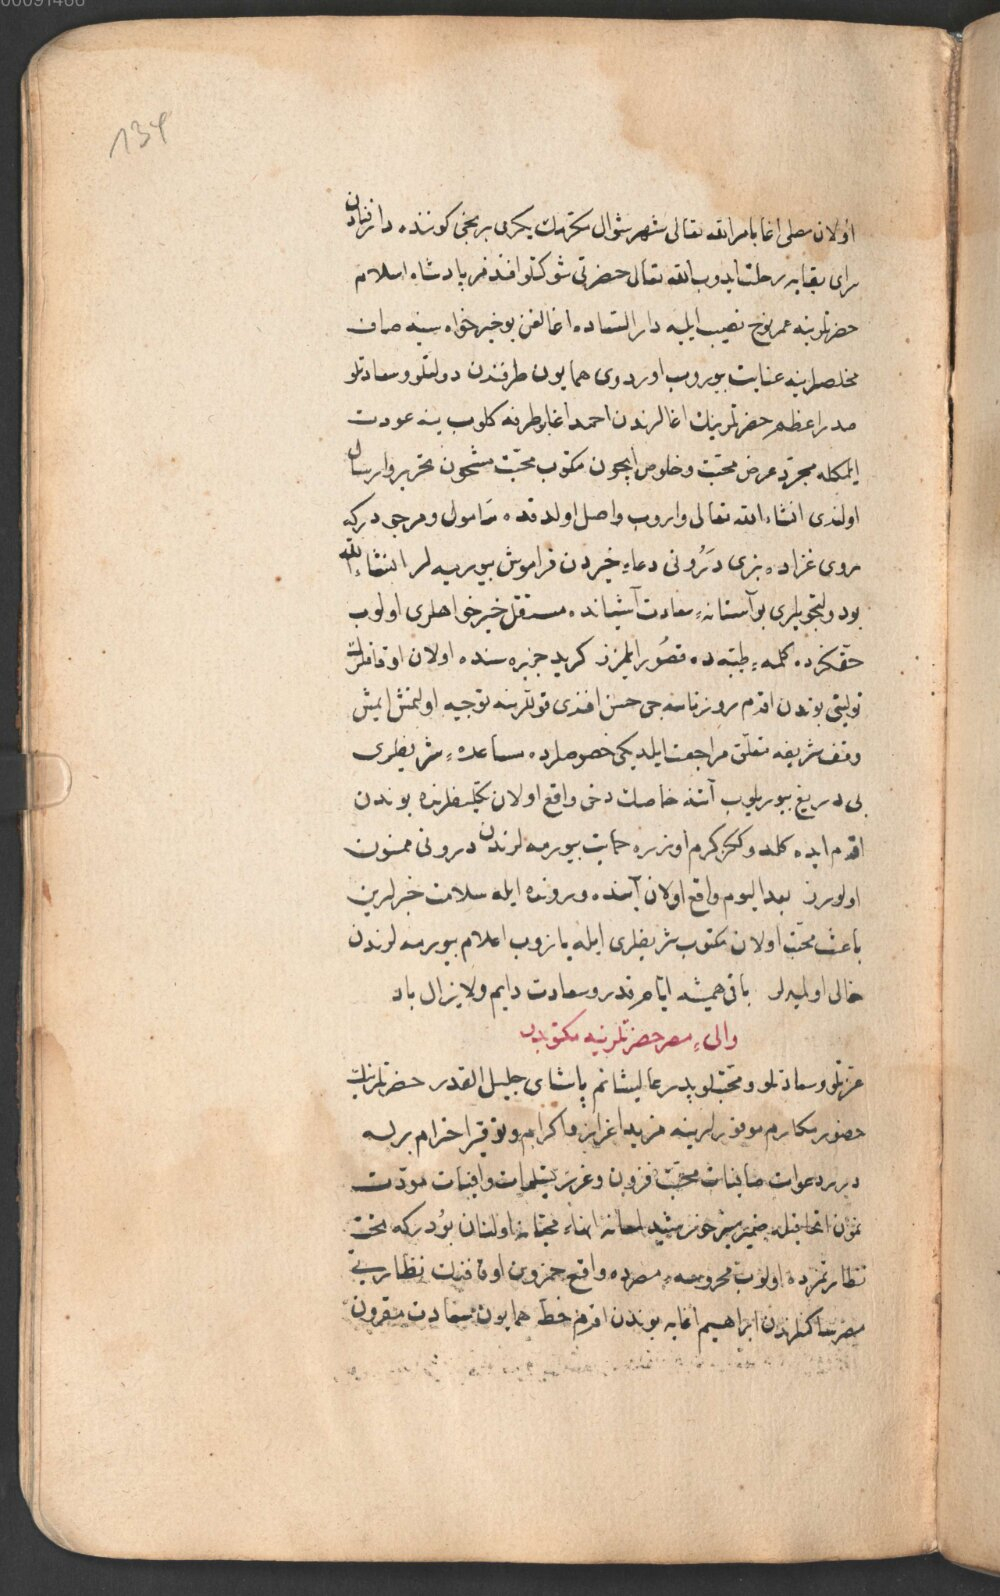 00091466
134
اولان مصلی اغا بامر الله تعالی شهر شوال مکرمك یکرمی برنجی کوننده دار فنادن
سرای بقایه رحلت ایدوب الله تعالی حضرتی شوکتلو افندمز پادشاه اسلام
حضرتلرینه عمر نوح نصیب ایلیه دار السعاده اغالغن بو خیرخواه سینه صاف
مخلصلرینه عنایت بیوروب اوردوی همایون طرفندن دولتلو وسعادتلو
صدر اعظم حضرتلرینك اغالرندن احمد اغا بو طرفه کلوب ینه عودت
ایلمکله مجرد عرض محبت وخلوص ایچون مکتوب محبت مشحون تحریر وارسال
اولندی انشاء الله تعالی واروب واصل اولدقده مأمول ومرجی درکه
روی غزاده بزی درونی دعاء خیردن فراموش بیورمیه لر انشاء الله
بو دولتجویلری بو آستانهٔ سعادت آشیانده مستقل خیرخواهلری اولوب
حقکزده کلمهٔ طیبه ده قصور ایلمزز کرید جزیره سنده اولان اوقافلرینك
تولیتی بوندن اقدم روزنامه جی حسن افندی قوللرینه توجیه اولنمش ایمش
وقف شریفه متعلق مراجعت ایلدیکی خصوصلرده مساعدهٔ شریفلری
بی دریغ بیوریلوب آستانه خاصك دخی واقع اولان تکلیفلرنده بوندن
اقدم ایده کلدوککز کرم اوزره حمایت بیورمه لرندن درونی ممنون
اولورز بعد الیوم واقع اولان آینده ورونده ایله سلامت خبرلرین
باعث محبت اولان مکتوب شریفلری ایله یازوب اعلام بیورمه لرندن
خالی اولمیه لر باقی همیشه ایام قدر وسعادت دایم ولایزال باد
والیٔ مصر حضرتلرینه مکتوبدر
عزتلو وسعادتلو ومحبتلو پدر عالیشانم پاشای جلیل القدر حضرتلرینك
حضور مکارم موفورلرینه مزید اعزاز واکرام وتوقیر احترام برله
درر دعوات صافیات محبت فزون وغرر تسلیمات وافیات مودت
نمون اتحافیله ضمیر منیر خورشید لمعانه انهاء محبانه اولنان بودرکه تحت
نظارتمزده اولوب محروسهٔ مصرده واقع حرمین اوقافنك نظارتی
مصر ساکنلرندن ابراهیم اغایه بوندن اقدم خط همایون سعادت مقرون